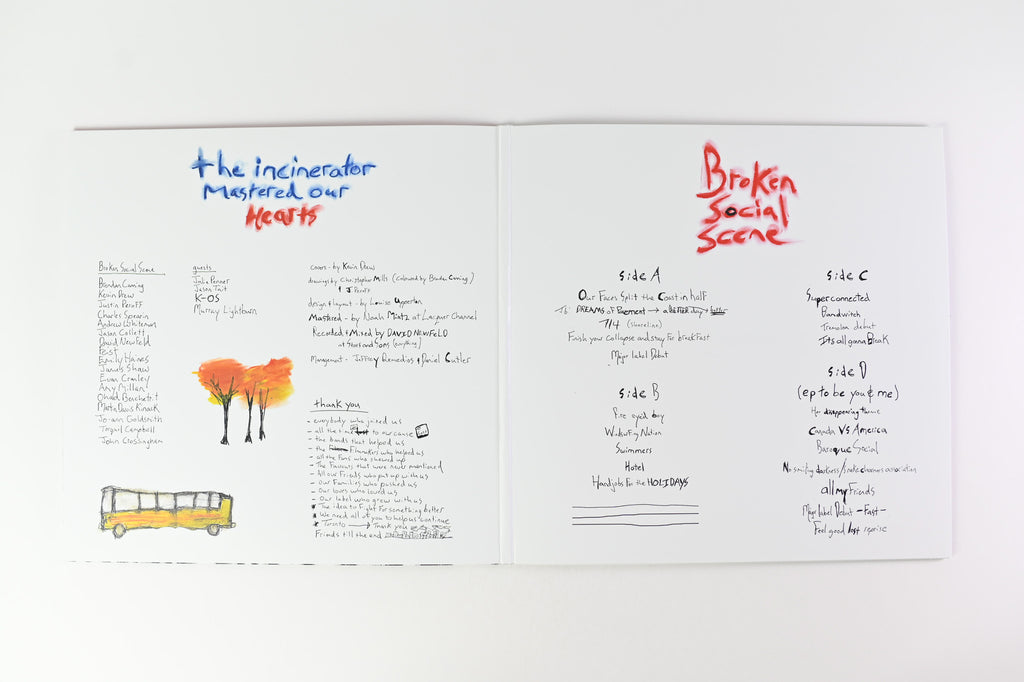 the incinerator
Mastered our
Hearts
Broken Social Scene
Brendan Canning
Kevin Drew
Justin Peroff
Charles Spearin
Andrew Whiteman
Jason Collett
David Newfeld
Feist
Emily Haines
James Shaw
Evan Cranley
Amy Millan
Ohad Benchetrit
Martin Davis Kinack
Jo-ann Goldsmith
Torquil Campbell
John Crossingham
guests
Julie Penner
Jason Tait
K-OS
Murray Lightburn
covers - by Kevin Drew
drawings by Christopher Mills (coloured by Brendan Canning)
& J Peroff
design & layout - by Louise Upperton
Mastered - by Noah Mintz at Lacquer Channel
Recorded & Mixed by DAVID NEWFELD
at Stars and Sons (everything)
Management - Jeffrey Remedios & Daniel Cutler
thank you
- everybody who joined us
- all the time to our cause
- the bands that helped us
- the Filmmakers who helped us
- all the Fans who showed up
- The Parents that were never mentioned
- All our Friends who put up with us
- Our Families who pushed us
- Our loves who loved us
- Our label who grow with us
* The idea to Fight For something better
* We need all of you to help us continue
* Toronto → Thank you
Friends till the end
Broken
Social
Scene
side A
Our Faces Split the Coast in half
To: DREAMS of Pavement → a better day
7/4 (shoreline)
Finish your collapse and stay for breakfast
Major label Debut
side B
Fire eyed boy
Windsurfing Nation
Swimmers
Hotel
Handjobs For the HOLIDAYS
side C
Superconnected
Bandwitch
Tremoloa debut
Its all gonna Break
side D
(ep to be you & me)
Her disappearing theme
Canada VS America
Baroque Social
No smiling darkness/snake charmers association
all my Friends
Major label Debut -Fast-
Feel good lost reprise